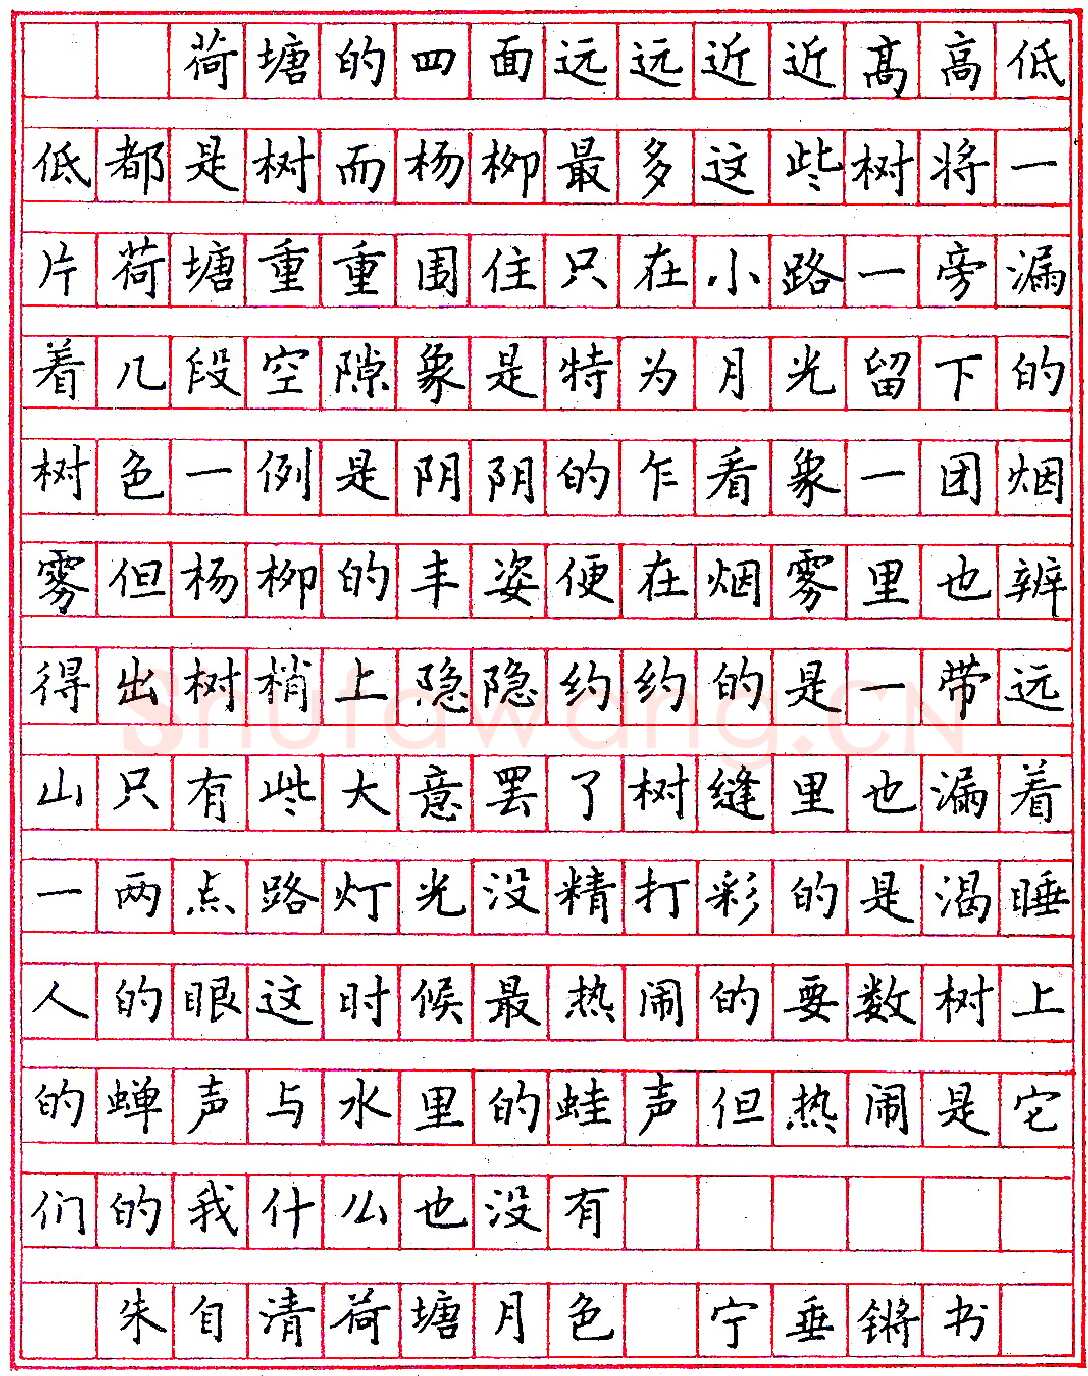 荷塘的四面远远近近高高低
低都是树而杨柳最多这些树将一
片荷塘重重围住只在小路一旁漏
着几段空隙象是特为月光留下的
树色一例是阴阴的乍看象一团烟
雾但杨柳的丰姿便在烟雾里也辨
得出树梢上隐隐约约的是一带远
山只有些大意罢了树缝里也漏着
一两点路灯光没精打彩的是渴睡
人的眼这时候最热闹的要数树上
的蝉声与水里的蛙声但热闹是它
们的我什么也没有
朱自清荷塘月色 宁垂锵书
Shufawang.CN